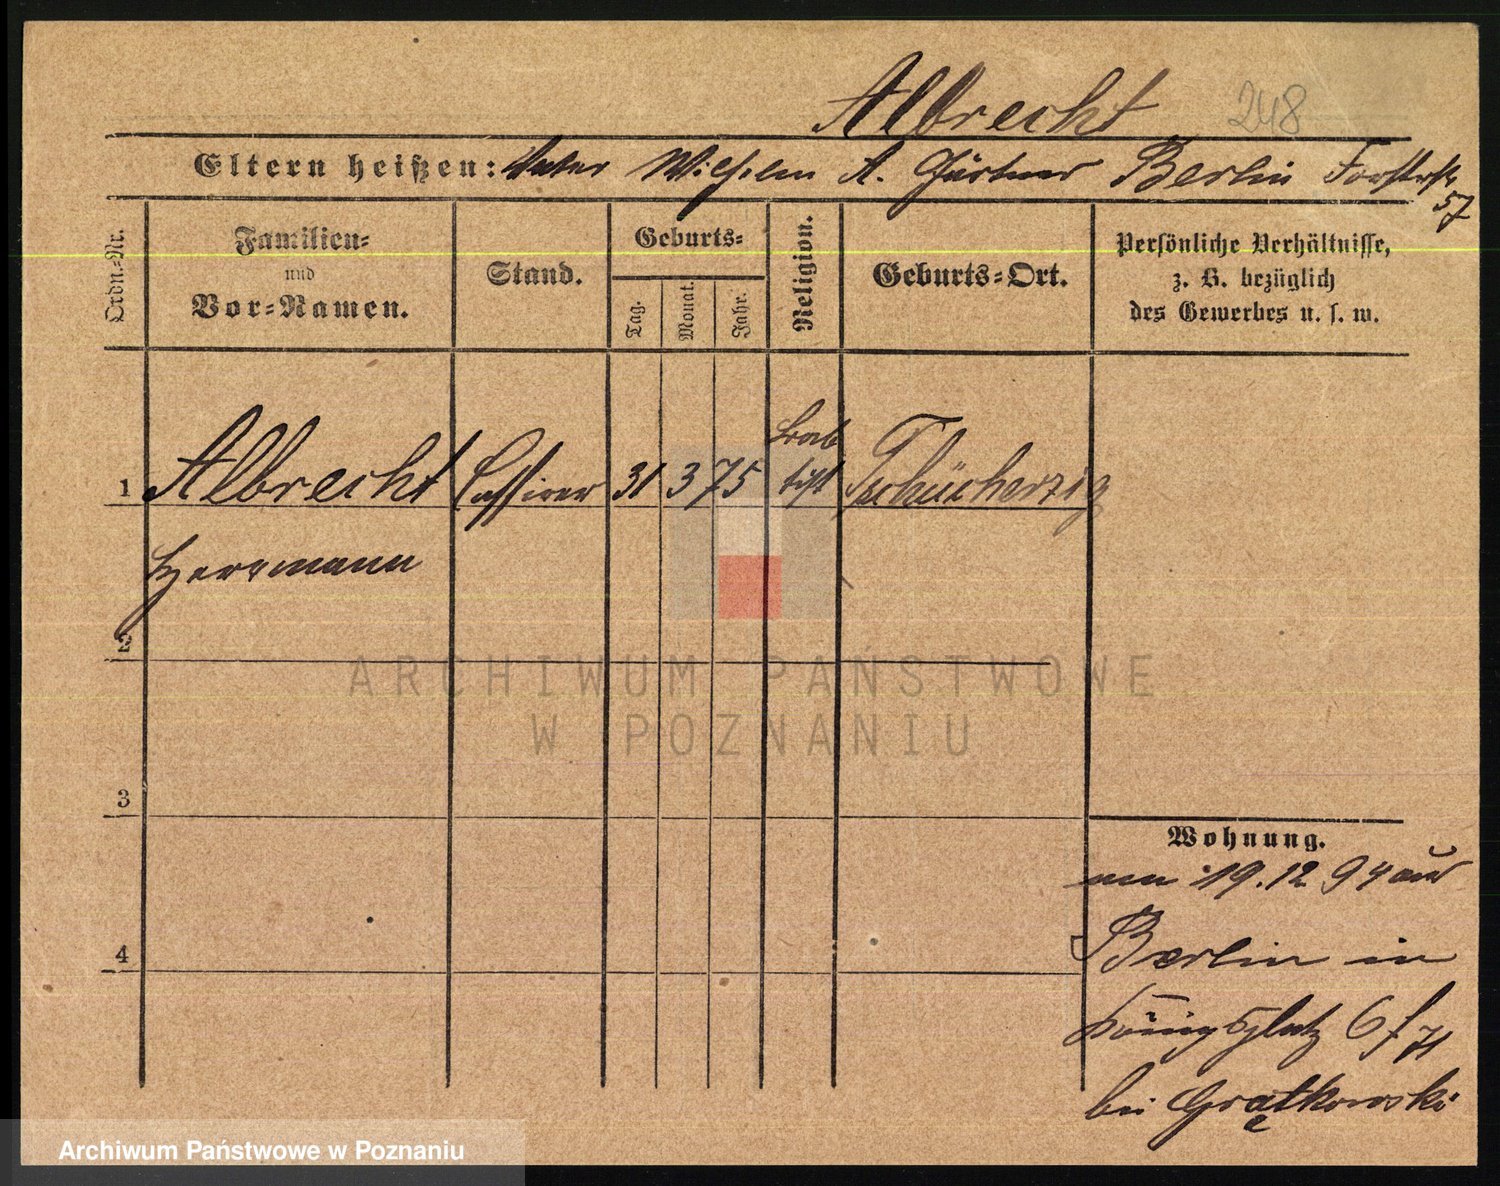 Albrecht 248
Eltern heißen: Vater Wilhelm A. Gärtner Berlin Forsterstr
57
Ordn.-Nr.
Familien-
und
Vor-Namen.
Stand.
Geburts-
Tag.
Monat.
Jahr.
Religion.
Geburts-Ort.
Persönliche Verhältnisse,
z. B. bezüglich
des Gewerbes u. s. w.
1 Albrecht Cassirer 31 3 75 Tschücherzig
Herrmann
2
ARCHIWUM PAŃSTWOWE
W POZNANIU
3
Wohnung.
19.12 94 aus
4
Berlin in
Königsplatz 6
bei Grątkowski
Archiwum Państwowe w Poznaniu